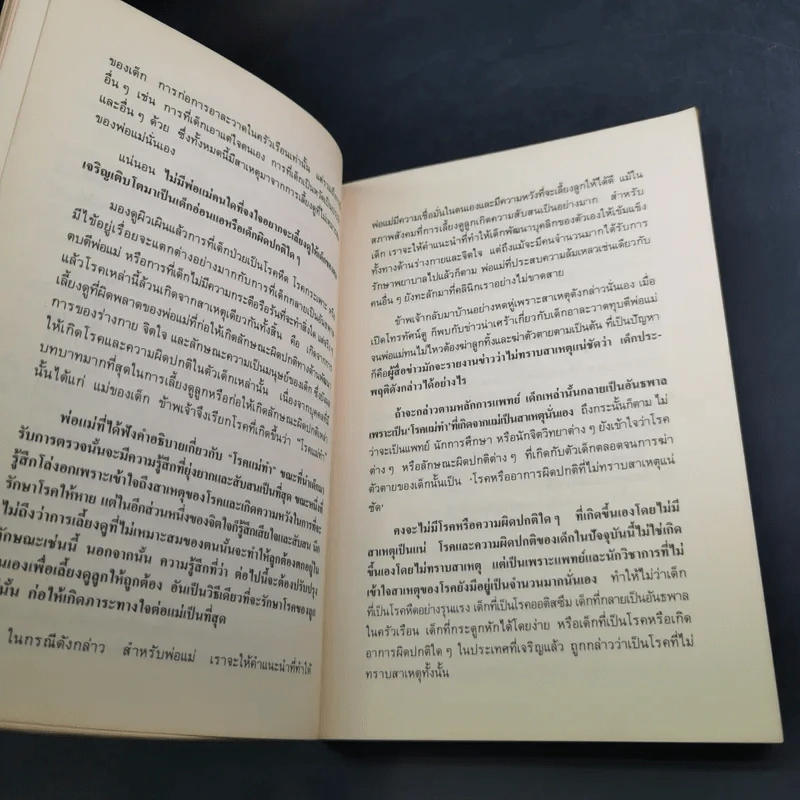 ของเด็ก การก่อการอาละวาดในครัวเรือนเท่านั้น
อื่น ๆ เช่น การที่เด็กเอาแต่ใจตนเอง การที่เด็กเป็น
และอื่น ๆ ด้วย ซึ่งทั้งหมดนี้มีสาเหตุมาจากการเลี้ยงดูที่
ของพ่อแม่นั่นเอง
แน่นอน ไม่มีพ่อแม่คนใดที่จงใจอยากจะเลี้ยงดูให้เด็ก
เจริญเติบโตมาเป็นเด็กอ่อนแอหรือเด็กผิดปกติใด ๆ
มองดูผิวเผินแล้วการที่เด็กป่วยเป็นโรคหืด โรคกระเพาะ
มีไข้อยู่เรื่อยจะแตกต่างอย่างมากกับการที่เด็กกลายเป็นอันธพาล
ตบตีพ่อแม่ หรือการที่เด็กไม่มีความกระตือรือร้นที่จะทำสิ่งใด
แล้วโรคเหล่านี้ล้วนเกิดจากสาเหตุเดียวกันทั้งสิ้น คือ เกิดจากการ
เลี้ยงดูที่ผิดพลาดของพ่อแม่ที่ก่อให้เกิดลักษณะผิดปกติทางด้านพัฒนา
การของร่างกาย จิตใจ และลักษณะความเป็นมนุษย์ของเด็ก
ให้เกิดโรคและความผิดปกติในตัวเด็กเหล่านั้น เนื่องจากบุคคลที่มี
บทบาทมากที่สุดในการเลี้ยงดูลูกหรือก่อให้เกิดลักษณะผิดปกติเหล่า
นั้นได้แก่ แม่ของเด็ก ข้าพเจ้าจึงเรียกโรคที่เกิดขึ้นว่า "โรคแม่ทำ"
พ่อแม่ที่ได้ฟังคำอธิบายเกี่ยวกับ "โรคแม่ทำ" ขณะที่นำเด็กมา
รับการตรวจนั้นจะมีความรู้สึกที่ยุ่งยากและสับสนเป็นที่สุด ขณะหนึ่ง
รู้สึกโล่งอกเพราะเข้าใจถึงสาเหตุของโรคและเกิดความหวังในการที่จะ
รักษาโรคให้หาย แต่ในอีกส่วนหนึ่งของจิตใจก็รู้สึกเสียใจและสับสน นึก
ไม่ถึงว่าการเลี้ยงดูที่ไม่เหมาะสมของตนนั้นจะทำให้ลูกต้องตกอยู่ใน
ลักษณะเช่นนี้ นอกจากนั้น ความรู้สึกที่ว่า ต่อไปนี้จะต้องปรับปรุง
เองเพื่อเลี้ยงดูลูกให้ถูกต้อง อันเป็นวิธีเดียวที่จะรักษาโรคของลูก
นั้น ก่อให้เกิดภาระทางใจต่อแม่เป็นที่สุด
ในกรณีดังกล่าว สำหรับพ่อแม่ เราจะให้คำแนะนำที่ทำให้
พ่อแม่มีความเชื่อมั่นในตนเองและมีความหวังที่จะเลี้ยงลูกให้ได้ดี แม้ใน
สภาพสังคมที่การเลี้ยงดูลูกเกิดความสับสนเป็นอย่างมาก สำหรับ
เด็ก เราจะให้คำแนะนำที่ทำให้เด็กพัฒนาบุคลิกของตัวเองให้เข้มแข็ง
ทั้งทางด้านร่างกายและจิตใจ แต่ถึงแม้จะมีคนจำนวนมากได้รับการ
รักษาพยาบาลไปแล้วก็ตาม พ่อแม่ที่ประสบความล้มเหลวเช่นเดียวกับ
คนอื่น ๆ ยังทะลักมาที่คลินิกเราอย่างไม่ขาดสาย
ข้าพเจ้ากลับมาบ้านอย่างหดหู่เพราะสาเหตุดังกล่าวนั่นเอง เมื่อ
เปิดโทรทัศน์ดู ก็พบกับข่าวน่าเศร้าเกี่ยวกับเด็กอาละวาดทุบตีพ่อแม่
จนพ่อแม่ทนไม่ไหวต้องฆ่าลูกทิ้งและฆ่าตัวตายตามเป็นต้น ที่เป็นปัญหา
ก็คือผู้สื่อข่าวมักจะรายงานข่าวว่าไม่ทราบสาเหตุแน่ชัดว่า เด็กประ-
พฤติดังกล่าวได้อย่างไร
ถ้าจะกล่าวตามหลักการแพทย์ เด็กเหล่านั้นกลายเป็นอันธพาล
เพราะเป็น'โรคแม่ทำ'ที่เกิดจากแม่เป็นสาเหตุนั่นเอง ถึงกระนั้นก็ตาม ไม่
ว่าจะเป็นแพทย์ นักการศึกษา หรือนักจิตวิทยาต่าง ๆ ยังเข้าใจว่าโรค
ต่าง ๆ หรือลักษณะผิดปกติต่าง ๆ ที่เกิดกับตัวเด็กตลอดจนการฆ่า
ตัวตายของเด็กนั้นเป็น 'โรคหรืออาการผิดปกติที่ไม่ทราบสาเหตุแน่
ชัด'
คงจะไม่มีโรคหรือความผิดปกติใด ๆ ที่เกิดขึ้นเองโดยไม่มี
สาเหตุเป็นแน่ โรคและความผิดปกติของเด็กในปัจจุบันนี้ไม่ใช่เกิด
ขึ้นเองโดยไม่ทราบสาเหตุ แต่เป็นเพราะแพทย์และนักวิชาการที่ไม่
เข้าใจสาเหตุของโรคยังมีอยู่เป็นจำนวนมากนั่นเอง ทำให้ไม่ว่าเด็ก
ที่เป็นโรคหืดอย่างรุนแรง เด็กที่เป็นโรคออติสซึ่ม เด็กที่กลายเป็นอันธพาล
ในครัวเรือน เด็กที่กระดูกหักได้โดยง่าย หรือเด็กที่เป็นโรคหรือเกิด
อาการผิดปกติใด ๆ ในประเทศที่เจริญแล้ว ถูกกล่าวว่าเป็นโรคที่ไม่
ทราบสาเหตุทั้งนั้น